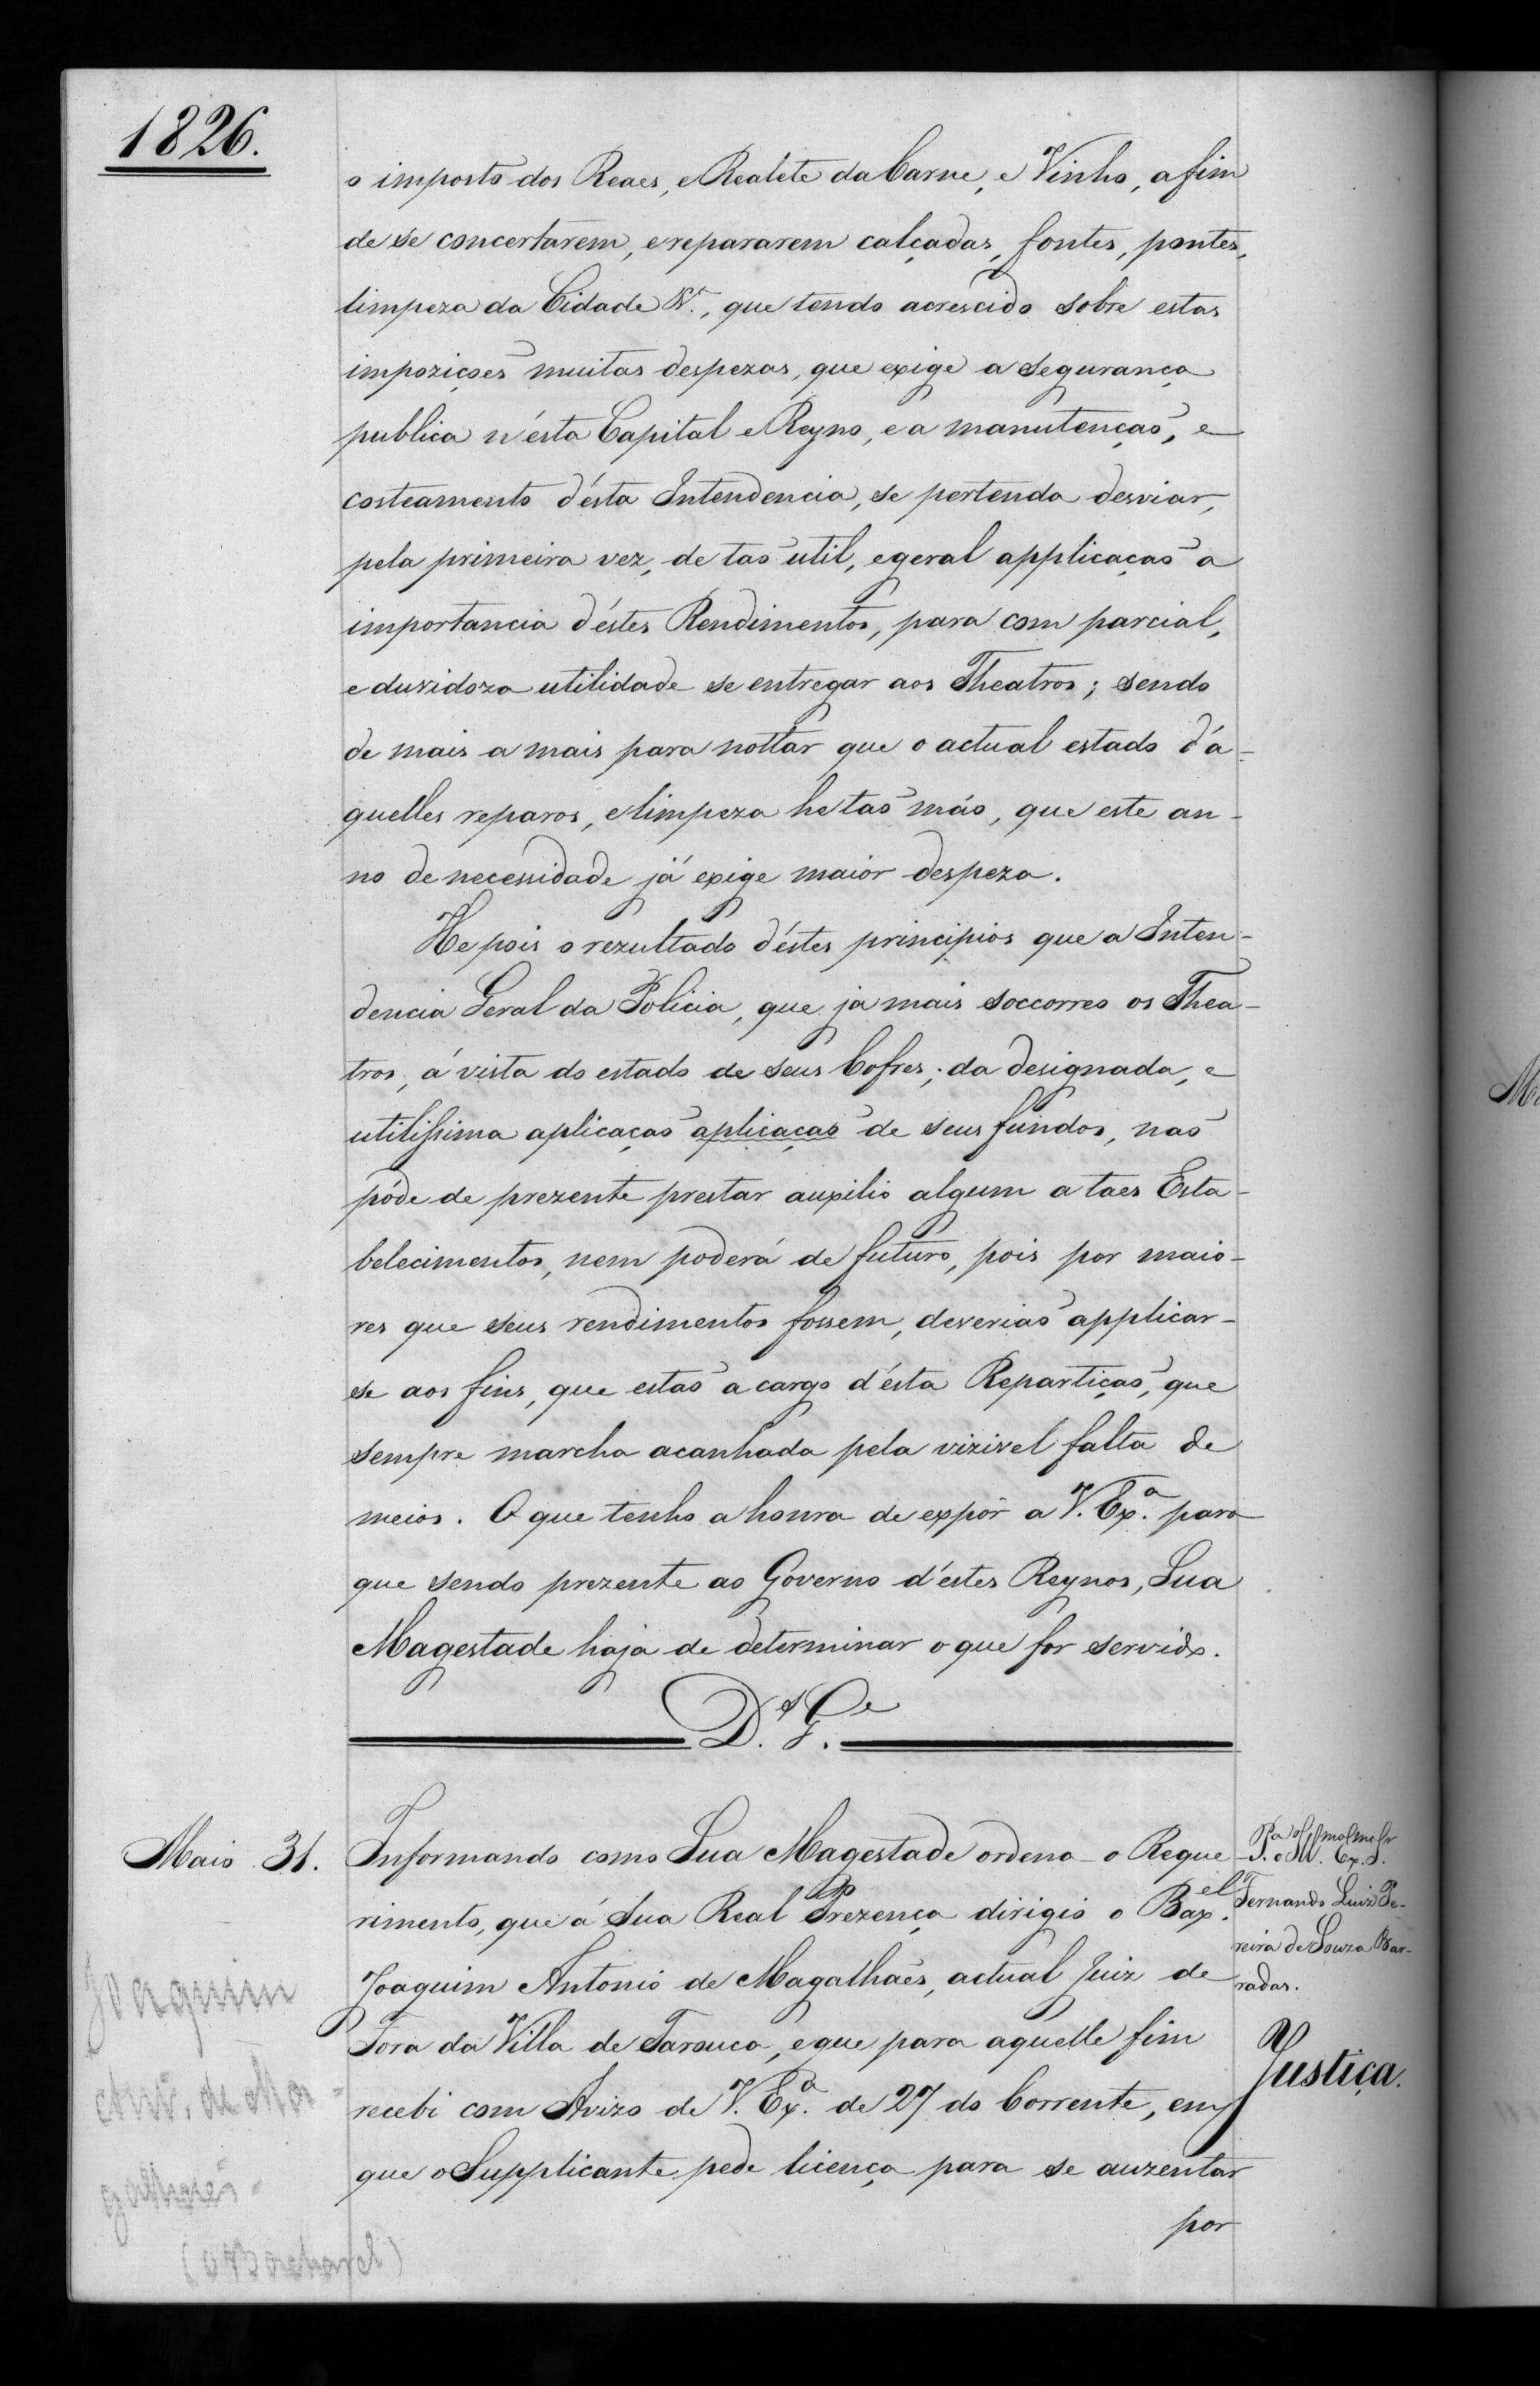 1826.
o imposto dos Reaes, e Realete da Carne, e Vinho, a fim
de se concertarem, e repararem calçadas, fontes, pontes,
limpeza da Cidade &ª., que tendo acrescido sobre estas
impoziçoẽs muitas despezas, que exige a segurança
publica n'ésta Capital e Reyno, e a manutençaõ, e
costeamento d'ésta Intendencia, se pertenda desviar,
pela primeira vez, de taõ util, e geral applicaçaõ a
importancia d'éstes Rendimentos, para com parcial,
e duvidoza utilidade se entregar aos Theatros; sendo
de mais a mais para nottar que o actual estado d'a-
quelles reparos, e limpeza he taõ máo, que este an-
no de necessidade já exige maior despeza.
He pois o rezultado d'éstes principios que a Inten-
dencia Geral da Policia, que ja mais soccorreo os Thea-
tros, á vista do estado de seus Cofres; da designada, e
utilissima aplicaçaõ aplicaçaõ de seus fundos, naõ
póde de prezente prestar auxilio algum a taes Esta-
belecimentos, nem poderá de futuro, pois por maio-
res que seus rendimentos fossem, deveriaõ applicar-
se aos fins, que estaõ a cargo d'ésta Repartiçaõ, que
sempre marcha acanhada pela vizivel falta de
meios. O que tenho a honra de expôr a V. Ex.ª para
que sendo prezente ao Governo d'éstes Reynos, Sua
Magestade haja de determinar o que for servido.
D.s G.e
Maio 31.
Informando como Sua Magestade ordena o Reque
rimento, que á Sua Real Prezença dirigio o Bax.el
Joaquim Antonio de Magalhaẽs, actual Juiz de
Fora da Villa de Tarouca, e que para aquelle fim
recebi com Avizo de V. Ex.ª de 27 do Corrente, em
que o Supplicante pede licença para se auzentar
por
P.a o Ill.mo Ex.mo Sr.
Fernando Luiz Pe-
reira de Souza Bar-
radas.
Justiça.
Joaquim
Antó. de Ma-
galhães =
(o Bacharel)